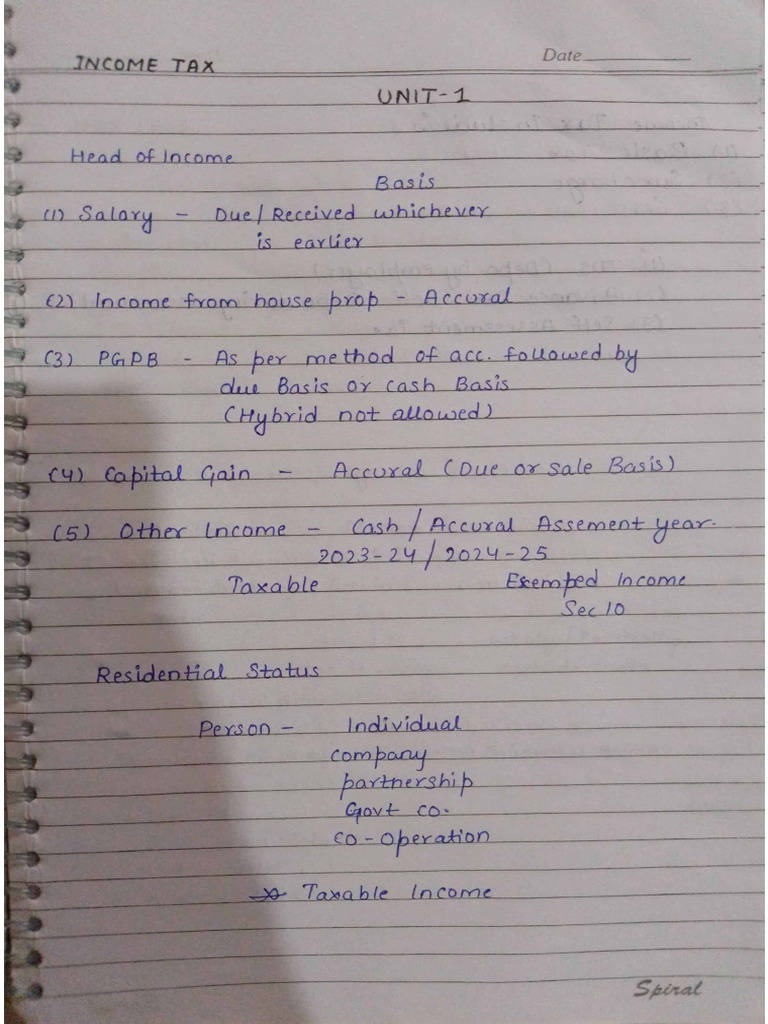 Date
INCOME TAX
UNIT-1
Head of Income
Basis
(1) Salary - Due/Received whichever
is earlier
(2) Income from house prop - Accural
(3) PGPB - As per method of acc. followed by
due Basis or cash Basis
(Hybrid not allowed)
(4) Capital Gain - Accural (Due or sale Basis)
(5) Other Income - Cash/Accural Assement year.
2023-24/2024-25
Taxable Exemped Income
Sec 10
Residential Status
Person - Individual
company
partnership
Govt co.
co-operation
Taxable Income
Spiral